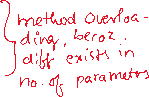 method Overloa-
ding, becoz.
diff exists in
no. of parametrs